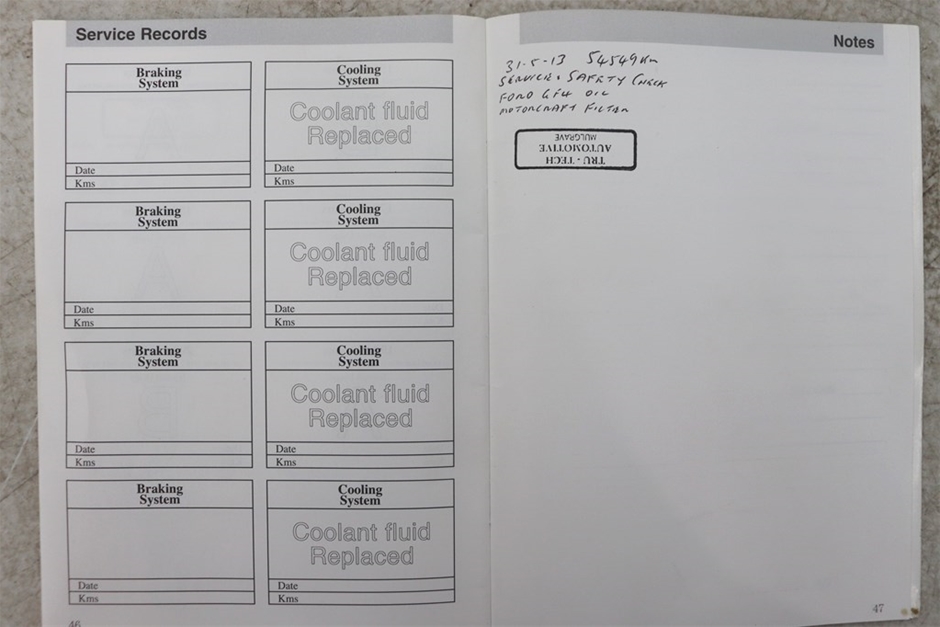 Service Records
Braking
System
Date
Kms
Cooling
System
Coolant fluid
Replaced
Date
Kms
Braking
System
Date
Kms
Cooling
System
Coolant fluid
Replaced
Date
Kms
Braking
System
Date
Kms
Cooling
System
Coolant fluid
Replaced
Date
Kms
Braking
System
Date
Kms
Cooling
System
Coolant fluid
Replaced
Date
Kms
46
Notes
31-5-13 54549Km
SERVICE & SAFETY CHECK
FORD OIL
MOTORCRAFT FILTER
TRU-TECH
AUTOMOTIVE
MULGRAVE
47